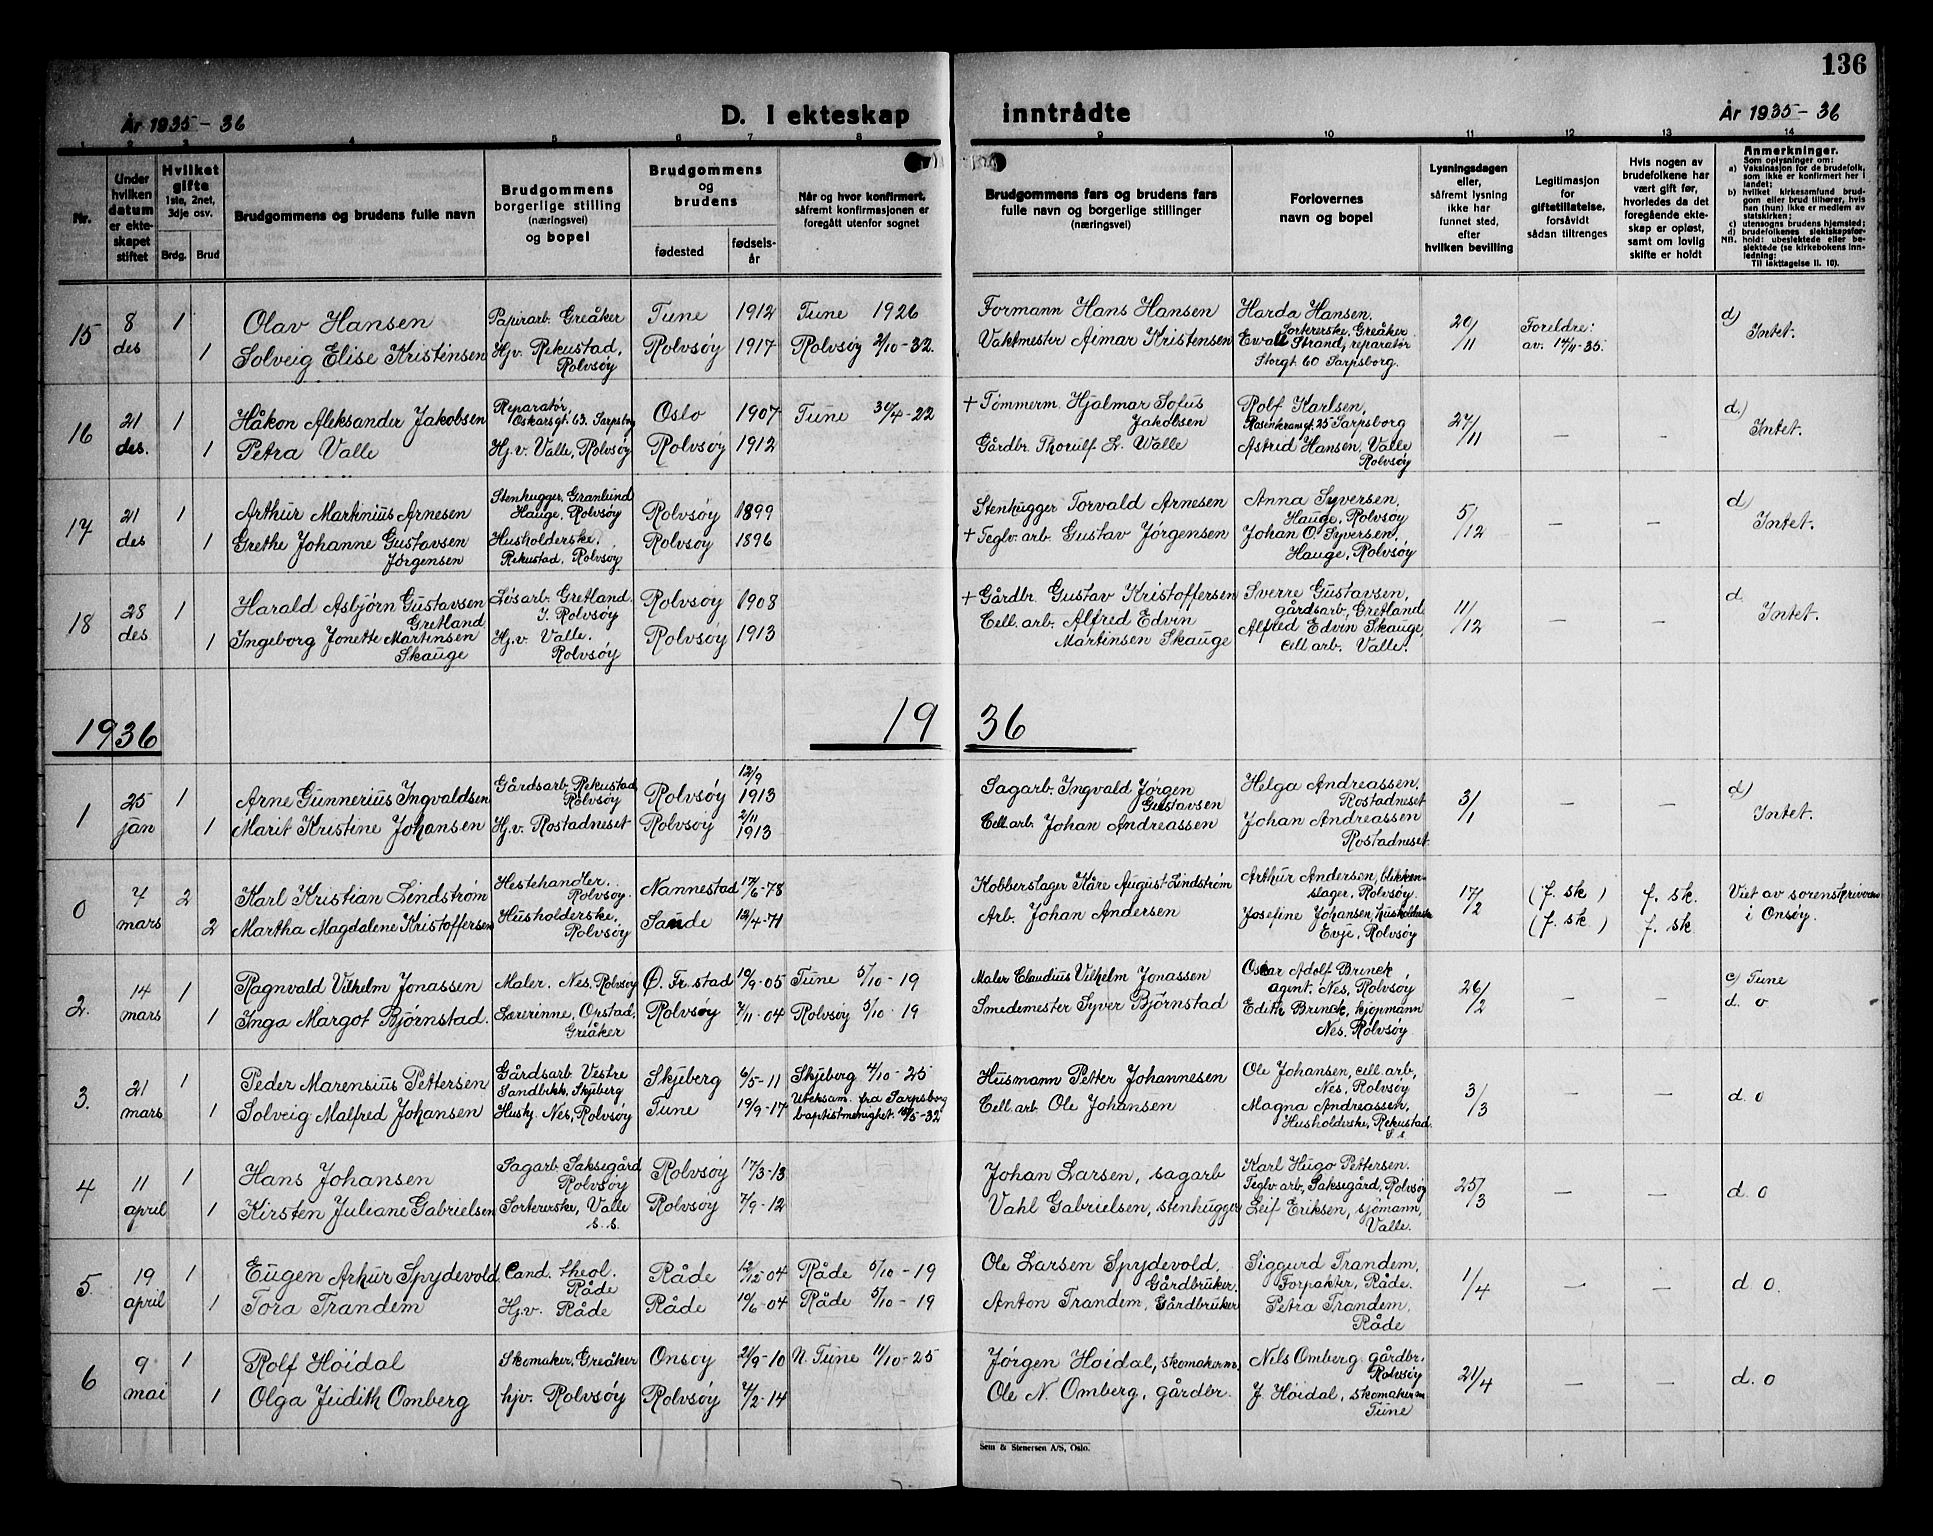 136
År 1935-36
D. I ekteskap inntrådte
År 1935-36
1 2 3 4 5 6 7 8 9 10 11 12 13 14
Nr.
Under hvilken datum er ekteskapet stiftet
Hvilket gifte 1ste, 2net, 3dje osv.
Brdg. Brud
Brudgommens og brudens fulle navn
Brudgommens borgerlige stilling (næringsvei) og bopel
Brudgommens og brudens
fødested fødselsår
Når og hvor konfirmert, såfremt konfirmasjonen er foregått utenfor sognet
Brudgommens fars og brudens fars fulle navn og borgerlige stillinger (næringsvei)
Forlovernes navn og bopel
Lysningsdagen eller, såfremt lysning ikke har funnet sted, efter hvilken bevilling
Legitimasjon for giftetillatelse, forsåvidt sådan tiltrenges
Hvis nogen av brudefolkene har vært gift før, hvorledes da det foregående ekteskap er opløst, samt om lovlig skifte er holdt
Anmerkninger.
Som oplysninger om:
a) Vaksinasjon for de brudefolk, som ikke er konfirmert her i landet;
b) hvilket kirkesamfund brudgom eller brud tilhører, hvis han (hun) ikke er medlem av statskirken;
c) utensogns brudens hjemsted;
d) brudefolkenes slektskapsforhold: ubeslektede eller beslektede (se kirkebokens innledning;
NB. Til iakttagelse II. 10).
15 8 des 1 Olav Hansen Papirarb. Greåker Tune 1912 Tune 1926 Formann Hans Hansen Harda Hansen. Sortererske, Greåker 20/11 Foreldre: av. 14/11-35. d) Intet.
1 Solveig Elise Kristinsen Hjv. Rekustad, Rolvsöy Rolvsöy 1917 Rolvsöy 2/10-32. Vaktmester Aimar Kristensen Ewald Strand, reparatør Storgt. 60 Sarpsborg.
16 21 des. 1 Håkon Aleksander Jakobsen Reparatør, Oskarsgt. 63. Sarpsborg Oslo 1907 Tune 30/4-22 + Tømmerm. Hjalmar Sofus Jakobsen Rolf Karlsen, Rosenkransgt. 25 Sarpsborg 27/11 – – d.) Intet.
1 Petra Valle Hj.v. Valle, Rolvsöy Rolvsöy 1912 Gårdbr. Thorulf L. Walle Astrid Hansen, Valle Rolvsöy
17 21 des 1 Arthur Martinius Arnesen Stenhugger, Granlund Hauge, Rolvsöy Rolvsöy 1899 Stenhugger Torvald Arnesen Anna Syversen, Hauge, Rolvsöy 5/12 – – d) Intet.
1 Grethe Johanne Gustavsen Jörgensen Husholderske. Rekustad, Rolvsöy Rolvsöy 1896 + Teglv. arb. Gustav Jörgensen Johan O. Syversen, Hauge, Rolvsöy
18 28 des 1 Harald Asbjørn Gustavsen Gretland Løsarb. Gretland. I. Rolvsöy Rolvsöy 1908 + Gårdbr. Gustav Kristoffersen Sverre Gustavsen, gårdsarb, Gretland 11/12 – – d Intet.
1 Ingeborg Jonette Martinsen Skauge Hj.v. Valle. Rolvsöy Rolvsöy 1913 Cell. arb. Alfred Edvin Martinsen Skauge Alfred Edvin Skauge, cell arb. Valle.
1936 1936
1 25 jan 1 Arne Gunnerius Ingvaldsen Gårdsarb. Rekustad Rolvsöy Rolvsöy 12/9 1913 Sagarb. Ingvald Jørgen Gustavsen Helga Andreassen. Rostadneset 3/1 – – d) Intet.
1 Marit Kristine Johansen Hj.v. Rostadneset Rolvsöy 2/11 1913 Cell. arb. Johan Andreassen Johan Andreassen Rostadneset.
0 7 mars 2 Karl Kristian Lindstrøm Hestehandler. Rolvsöy. Nannestad 17/6-78 Kobberslager Kåre August Lindstrøm Arthur Andersen, blikkenslager, Rolvsöy. 17/2 (f. sk) f. sk. Viet av sorenskriveren i Onsöy.
2 Martha Magdalene Kristoffersen Husholderske. Rolvsöy Sande 12/4-71 Arb. Johan Andersen Josefine Johansen, husholderske Evje, Rolvsöy (f. sk) f. sk
2. 14 mars 1 Ragnvald Vilhelm Jonassen Maler. Nes, Rolvsöy Ö. Fr.stad 19/9-05 Tune 5/10-19 Maler Claudius Vilhelm Jonassen Oskar Adolf Brinck agent. Nes, Rolvsöy 26/2 – – c) Tune
1 Inga Margot Björnstad. Lærerinne, Opstad, Greåker Rolvsöy 7/11-04 Rolvsöy 5/10-19 Smedemester Syver Björnstad Edith Brinck, kjøpmann Nes, Rolvsöy d. o
3. 21 mars 1 Peder Marensius Pettersen Gårdsarb Vestre Sandbekk, Skjeberg Skjeberg 6/5-11 Skjeberg 4/10-25 Husmann Petter Johannesen Ole Johansen, cell arb, Nes, Rolvsöy 3/3 – – d. o
1 Solveig Malfred Johansen Husky. Nes, Rolvsöy Tune 19/9-17 Uteksam. fra Sarpsborg baptistmenighet 15/5-32 Cell. arb. Ole Johansen Magna Andreassen, Husholderske, Rekustad. S s
4 11 april 1 Hans Johansen Sagarb. Saksegård Rolvsöy Rolvsöy 17/3-13 Johan Larsen, sagarb Karl Hugo Pettersen. Teglv. arb, Saksegård, Rolvsöy 25/3 – – d. o
1 Kirsten Juliane Gabrielsen Sortererske, Valle s. s. Rolvsöy 7/9-12 Vahl Gabrielsen, stenhugger Leif Eriksen, sjömann, Valle.
5. 19 april 1 Eugen Arhur Spydevold. Cand. theol. Råde Råde 12/12-04 Råde 5/10-19 Ole Larsen Spydevold. Gårdbruker. Siggurd Trandem, Forpakter, Råde. 1/4 – – d. o.
1 Tora Trandem Hj.v. Råde Råde 19/6-04 Råde 5/10-19 Anton Trandem, Gårdbruker Petra Trandem, Råde
6 9 mai 1 Rolf Høidal Skomaker, Greåker Onsöy 21/9-10 N. Tune 11/10-25 Jørgen Høidal, skomakerm. Nils Omberg. gårdbr. Rolvsöy 21/4 – – d. o
1 Olga Judith Omberg hjv. Rolvsöy Rolvsöy 4/2-14 Ole N. Omberg, gårdbr. J. Høidal, skomakerm Tune
Sem & Stenersen A/S, Oslo.